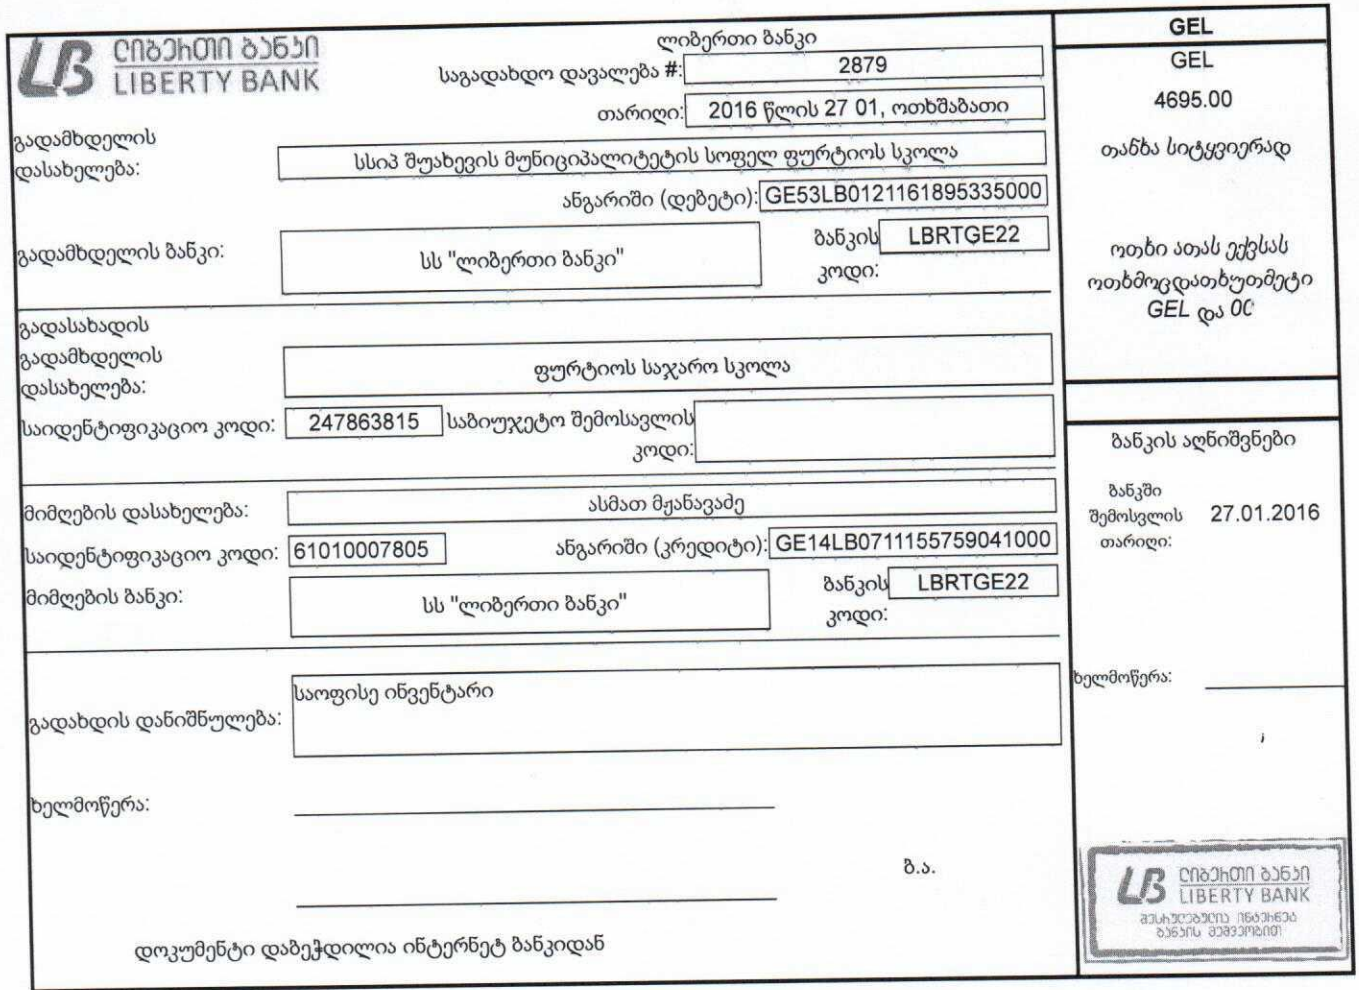 ლიბერთი ბანკი
LIBERTY BANK
ლიბერთი ბანკი
საგადახდო დავალება #: 2879
თარიღი: 2016 წლის 27 01, ოთხშაბათი
გადამხდელის
დასახელება: სსიპ შუახევის მუნიციპალიტეტის სოფელ ფურტიოს სკოლა
ანგარიში (დებეტი): GE53LB0121161895335000
გადამხდელის ბანკი: სს "ლიბერთი ბანკი" ბანკის LBRTGE22
კოდი:
გადასახადის
გადამხდელის
დასახელება: ფურტიოს საჯარო სკოლა
საიდენტიფიკაციო კოდი: 247863815 საბიუჯეტო შემოსავლის
კოდი:
მიმღების დასახელება: ასმათ მჟანავაძე
საიდენტიფიკაციო კოდი: 61010007805 ანგარიში (კრედიტი): GE14LB0711155759041000
მიმღების ბანკი: სს "ლიბერთი ბანკი" ბანკის LBRTGE22
კოდი:
გადახდის დანიშნულება: საოფისე ინვენტარი
ხელმოწერა:
ბ.ა.
დოკუმენტი დაბეჭდილია ინტერნეტ ბანკიდან
GEL
GEL
4695.00
თანხა სიტყვიერად
ოთხი ათას ექვსას
ოთხმოცდათხუთმეტი
GEL და 00
ბანკის აღნიშვნები
ბანკში
შემოსვლის 27.01.2016
თარიღი:
ხელმოწერა:
ლიბერთი ბანკი
LIBERTY BANK
შესრულებულია ინტერნეტ
ბანკის მეშვეობით